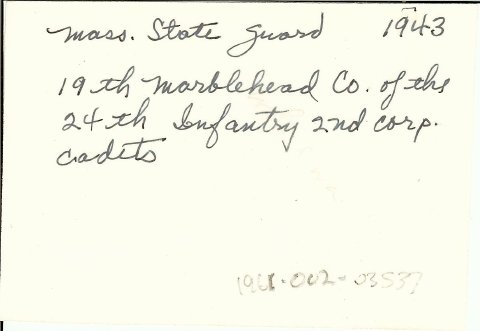 Mass. State Guard 1943
19th Marblehead Co. of the
24th Infantry 2nd Corp.
Cadets
1961-002-03537